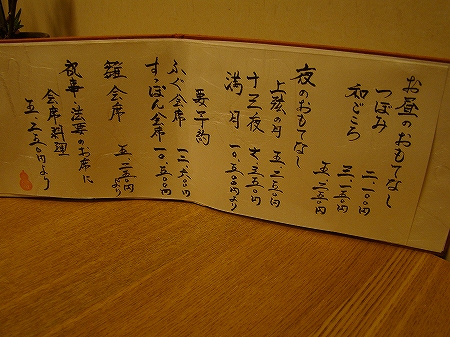 お昼のおもてなし
つぼみ 二、一〇〇円
和ごころ 三、一五〇円
五、二五〇円
夜のおもてなし
上弦の月 五、二五〇円
十三夜 七、三五〇円
満月 一〇、五〇〇円より
要予約
ふぐ会席 一二、六〇〇円
すっぽん会席 一〇、五〇〇円
会席 五、二五〇円より
祝事・法要のお席に
会席料理
五、二五〇円より